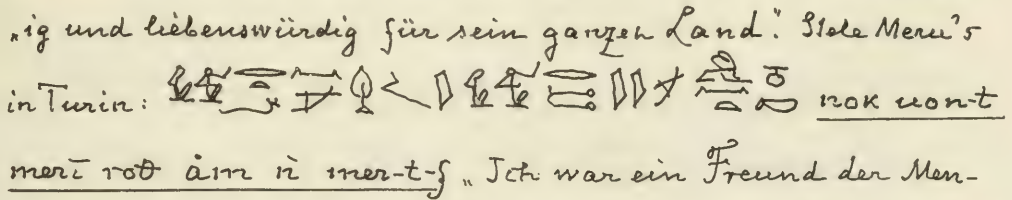 „ig und liebenswürdig für sein ganzen Land“. Stele Meru's
in Turin: nok uon-t
meri roθ åm ṅ mer-t-f „Ich war ein Freund der Men-